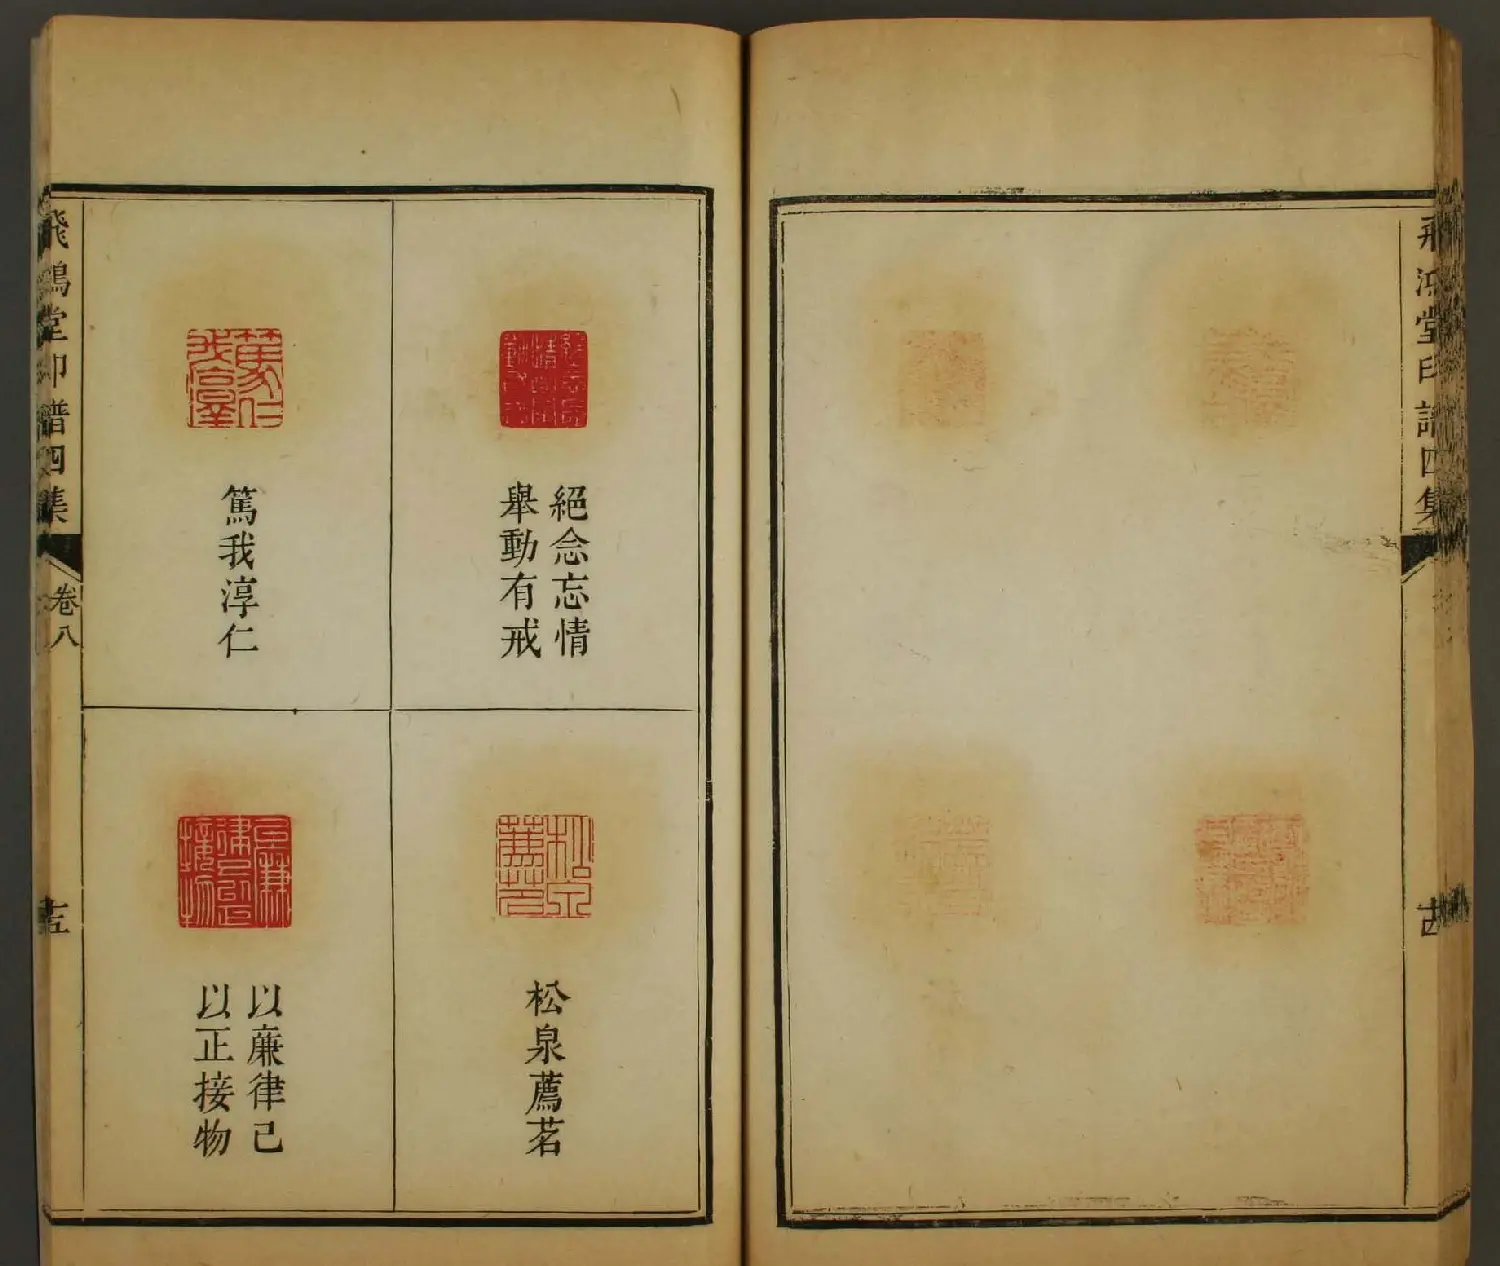 飛鴻堂印譜四集
十四
絕念忘情
舉動有戒
松泉薦茗
篤我淳仁
以廉律己
以正接物
飛鴻堂印譜四集
卷八
十五